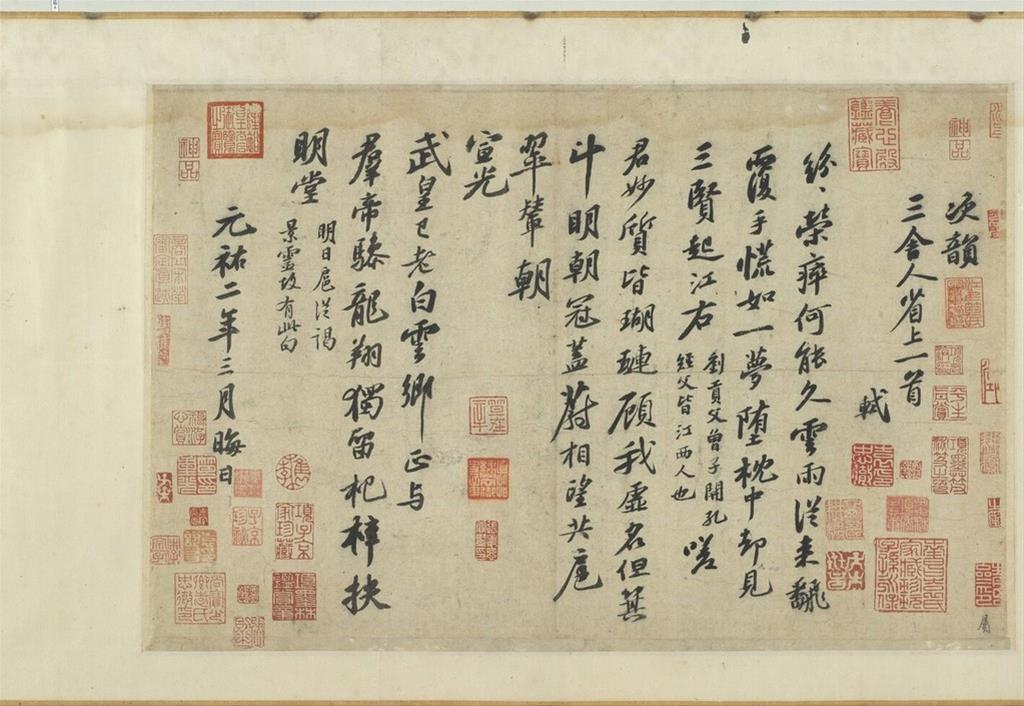 神品
養心殿鑑藏寶
次韻
三舍人省上一首
軾
紛〻榮瘁何能久雲雨從来翻
覆手慌如一夢堕枕中却見
三賢起江右
劉貢父曾子開孔
經父皆江西人也
嗟
君妙質皆瑚璉顧我虛名但箕
斗明朝冠蓋蔚相望共扈
翠輦朝
宣光
武皇已老白雲鄉正与
羣帝驂龍翔獨留杞梓扶
明堂
明日扈從謁
景靈故有此句
元祐二年三月晦日
項子京家珍藏
神品